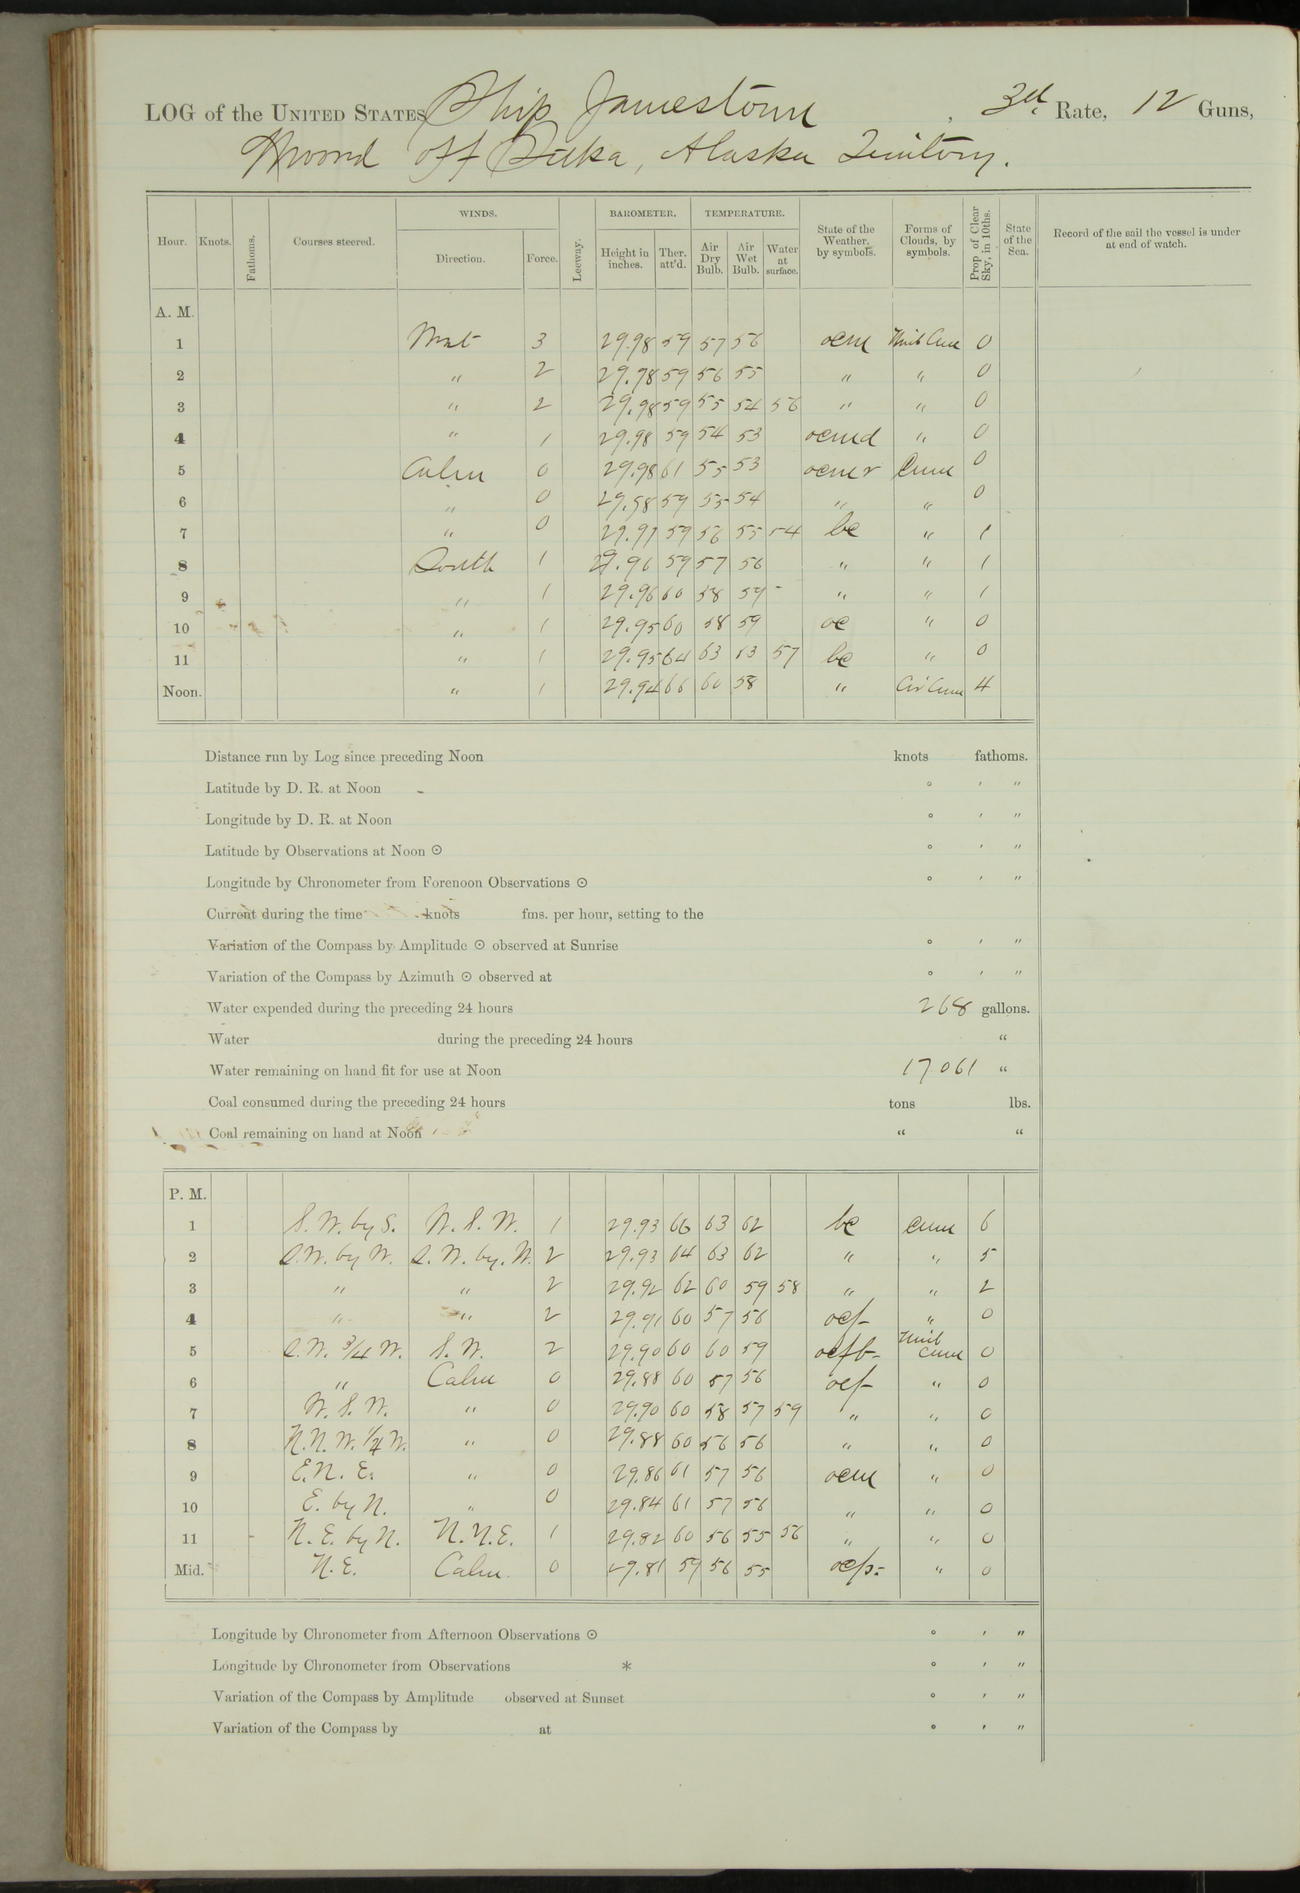 LOG of the UNITED STATES Ship Jamestown, 3d. Rate, 12 Guns,
Moored off Sitka, Alaska Territory.
Hour. Knots. Fathoms. Courses steered. WINDS. Direction. Force. Leeway. BAROMETER. Height in inches. Ther. att'd. TEMPERATURE. Air Dry Bulb. Air Wet Bulb. Water at surface. State of the Weather, by symbols. Forms of Clouds, by symbols. Prop of Clear Sky, in 10ths. State of the Sea. Record of the sail the vessel is under at end of watch.
A. M.
1 West 3 29.98 59 57 56 ocm Nimb Cum 0
2 " 2 29.98 59 56 55 " " 0
3 " 2 29.98 59 55 54 56 " " 0
4 " 1 29.98 59 54 53 ocmd " 0
5 Calm 0 29.98 61 55 53 ocmr Cum 0
6 " 0 29.98 59 55 54 " " 0
7 " 0 29.97 59 56 55 54 bc " 1
8 South 1 29.96 59 57 56 " " 1
9 " 1 29.96 60 58 59 " " 1
10 " 1 29.95 60 58 59 oc " 0
11 " 1 29.95 64 63 63 57 bc " 0
Noon. " 1 29.94 66 60 58 " Cir Cum 4
Distance run by Log since preceding Noon knots fathoms.
Latitude by D. R. at Noon ° ' "
Longitude by D. R. at Noon ° ' "
Latitude by Observations at Noon ⊙ ° ' "
Longitude by Chronometer from Forenoon Observations ⊙ ° ' "
Current during the time knots fms. per hour, setting to the
Variation of the Compass by Amplitude ⊙ observed at Sunrise ° ' "
Variation of the Compass by Azimuth ⊙ observed at ° ' "
Water expended during the preceding 24 hours 268 gallons.
Water during the preceding 24 hours "
Water remaining on hand fit for use at Noon 17061 "
Coal consumed during the preceding 24 hours tons lbs.
Coal remaining on hand at Noon " "
P. M.
1 S.W. by S. W.S.W. 1 29.93 66 63 62 bc Cum 6
2 S.W. by W. S.W. by. W. 2 29.93 64 63 62 " " 5
3 " " 2 29.92 62 60 59 58 " " 2
4 " " 2 29.91 60 57 56 ocf " 0
5 S.W. 3/4 W. S.W. 2 29.90 60 60 59 Nimb Cum 0
6 " Calm 0 29.88 60 57 56 ocf " 0
7 W.S.W. " 0 29.90 60 58 57 59 " " 0
8 N.N.W. 1/4 W. " 0 29.88 60 56 56 " " 0
9 E.N.E. " 0 29.86 61 57 56 ocm " 0
10 E. by N. " 0 29.84 61 57 56 " " 0
11 N.E. by N. N.N.E. 1 29.82 60 56 55 56 " " 0
Mid. N.E. Calm. 0 29.81 59 56 55 ocp. " 0
Longitude by Chronometer from Afternoon Observations ⊙ ° ' "
Longitude by Chronometer from Observations * ° ' "
Variation of the Compass by Amplitude observed at Sunset ° ' "
Variation of the Compass by at ° ' "